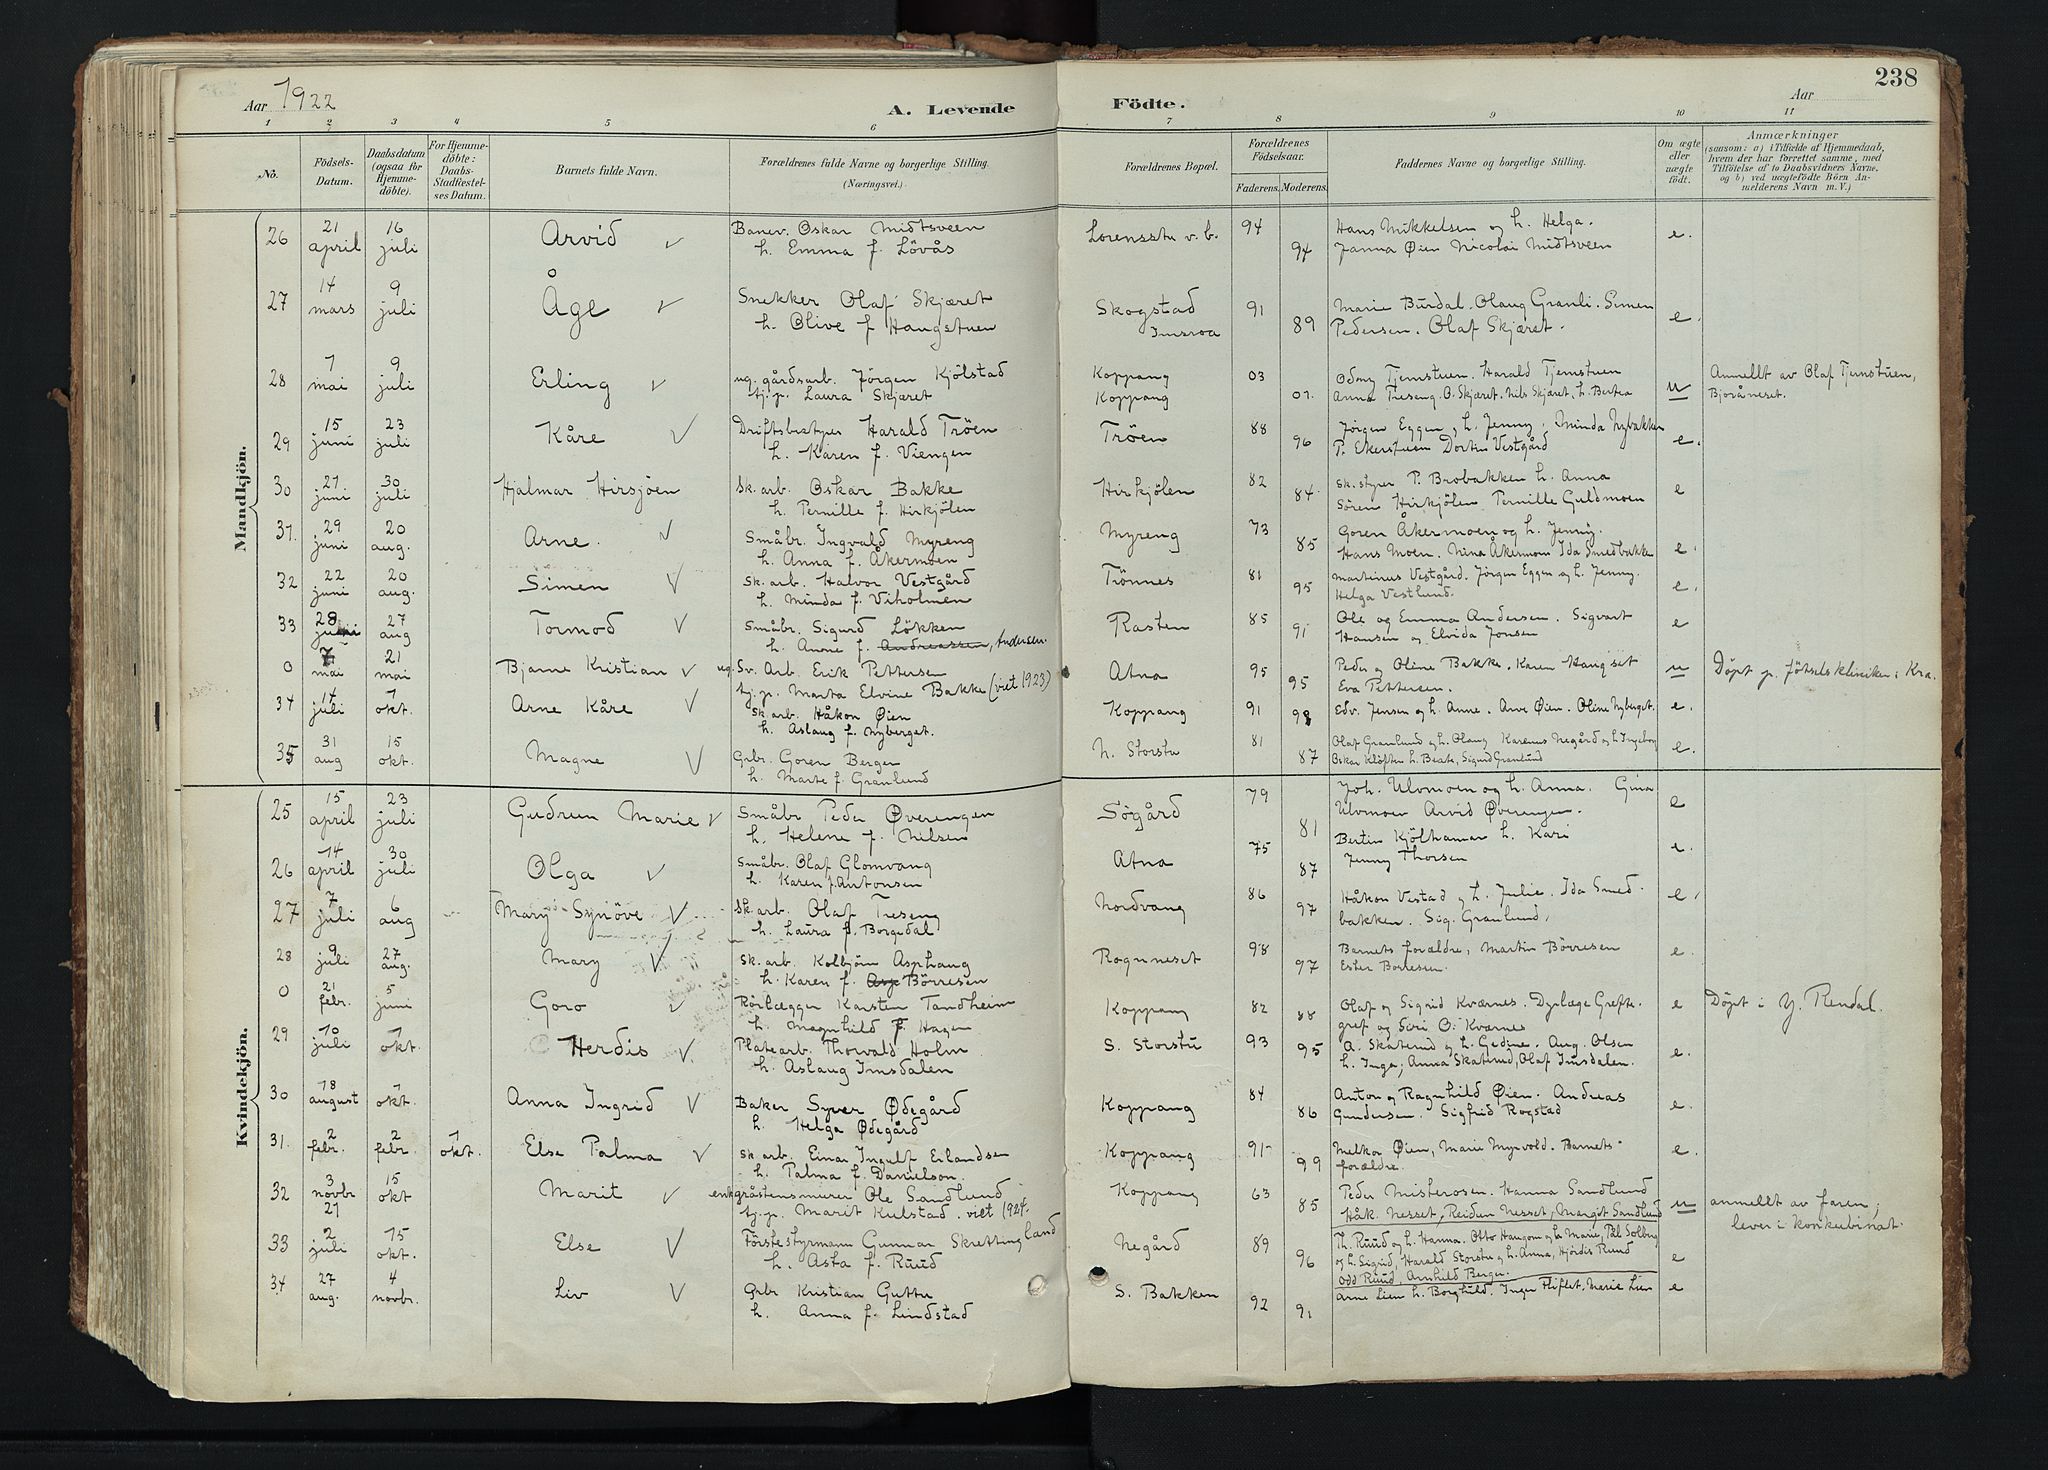 238
Aar 1922
A. Levende Födte.
Aar
1 2 3 4 5 6 7 8 9 10 11
No.
Födsels-Datum.
Daabsdatum (ogsaa for Hjemme-döbte).
For Hjemme-döbte: Daabs-Stadfæstel-ses Datum.
Barnets fulde Navn.
Forældrenes fulde Navne og borgerlige Stilling. (Næringsvei.)
Forældrenes Bopæl.
Forældrenes Födselsaar.
Faderens. Moderens.
Faddernes Navne og borgerlige Stilling.
Om ægte eller uægte födt.
Anmærkninger
(saasom: a) i Tilfælde af Hjemmedaab, hvem der har forrettet samme, med Tilföielse af to Daabsvidners Navne, og b) ved uægtefödte Börn An-melderens Navn m. V.)
Mandkjön.
26 21 april 16 juli Arvid Banev. Oskar Midtsveen Lorensstu v. b. 94 Hans Mikkelsen og h. Helga. e.
h. Emma f. Lövås 94 Janna Øien Nicolai Midtsveen
27 14 mars 9 juli Åge Snekker Olaf Skjæret Skogstad 91 Marie Burdal. Olaug Granli. Simen e.
h. Olive f. Haugstuen Imsroa 89 Pedersen. Olaf Skjæret.
28 7 mai 9 juli Erling ug. gårdsarb. Jörgen Kjölstad Koppang 03 Odmy Tjernstuen. Harald Tjernstuen Anmellt av Olaf Tjernstuen,
tj.p. Laura Skjæret Koppang 01. Anna Treseng. O. Skjæret. Nils Skjæret, h. Bertea u Bjoråneset.
29 15 juni 23 juli Kåre Driftsbestyrer Harald Tröen Tröen 88 Jörgen Eggen og h. Jenny. Minda Nybakken
h. Karen f. Viengen 96 P. Ekerstuen Dortin Vestgård e.
30 27 juni 30 juli Hjalmar Hirsjöen Sk. arb. Oskar Bakke Hirkjölen 82 Sk. styrer P. Brobakken h. Anna
h. Pernille f. Hirkjölen 84. Sören Hirkjölen Pernille Guldmoen e
31. 29 juni 20 aug. Arne. Småbr. Ingvald Myreng Myreng 73 Goren Åkermoen og h. Jenny.
h. Anna f. Åkermoen 85 Hans Moen. Nina Åkermoen Ida Smedbakke e.
32 22 juni 20 aug. Simen Sk. arb. Halvor Vestgård Trönnes 81 Martinus Vestgård. Jörgen Eggen og h. Jenny.
h. Minda f. Viholmen 95 Helga Vestlund. e.
33 28 juni 27 aug Tormod Småbr. Sigurd Lökken Rasten 85 Ole og Emma Andersen. Sigvart e
h. Anne f. Andreassen, Andersen. 91 Hansen og Elvida Jonsen
0 7 mai 21 mai Bjarne Kristian ug. Sv. Arb. Erik Pettersen Atna 95 Peder og Oline Bakke. Karen Haugset u Döpt p. fötselskliniken i Kra.
tj.p. Marta Elvine Bakke (viet 1923) 95 Eva Pettersen.
34 14 juli 1 okt. Arne Kåre Sk. arb. Håkon Øien Koppang 91 98 Edv. Jensen og h. Anne. Arve Øien. Oline Nyberget. e.
h. Aslaug f. Nyberget.
35 31 aug 15 okt. Magne Grbr. Goren Berger N. Storstu 81 Olaf Granlund og h. Olaug Karenus Negård og h. Ingeborg e.
h. Marte f. Granlund 87 Oskar Klöften h. Beate, Sigurd Granlund
Kvindekjön.
25 15 april 23 juli Gudrun Marie Småbr Peder Øverengen Sögård 79 Joh. Ulvmoen og h. Anna. Gina e
h. Helene f. Nilsen 81 Ulvmoen Arvid Øverengen.
26 14 april 30 juli Olga Småbr. Olaf Glomvang Atna 75 Bertin Kjölhamar h. Kari e.
h. Karen f. Antonsen 87 Jenny Thorsen
27 7 juli 6 aug Mary Synöve Sk. arb. Olaf Treseng Nordvang 86 Håkon Vestad og h. Julie. Ida Smed- e.
h. Laura f. Borgedal 97 bakken. Sig. Granlund.
28 9 juli 27 aug. Mary Sk. arb. Kolbjörn Asphaug Rognneset 98 Barnets forældre, Martin Börresen e.
h. Karen f. Asp Börresen 97 Ester Börresen.
0 21 febr. 5 juni Goro Rörlægger Karsten Tandheim Koppang 82 Olaf og Sigrid Kværnes. Dyrlæge Grefte. e Döpt i Y. Rendal.
h. Magnhild f. Hagen 88 gref og Siri O. Kværnes
29 10 juli 1 okt. Herdis Platearb. Thorvald Holm S. Storstu 93 95 A. Skaterud og h. Gedine. Aug. Olsen
h. Aslaug Imsdalen h. Inga; Anna Skaterud, Olaf Imsdalen. e.
30 18 august 1 okt. Anna Ingrid Baker Syver Ødegård Koppang 84 Anton og Ragnhild Øien. Andreas
h. Helga Ødegård 86 Gundersen. Sigfrid Rogstad e.
31. 2 febr. 2 febr. 1 okt. Else Palma Sk. arb. Einar Ingulf Erlandsen Koppang 91 Melkor Øien, Marie Myrvold. Barnets e.
h. Palma f. Danielson. 99 forældre.
32 3 novbr 21 15 okt Marit enk gråstensmurer Ole Sandlund Koppang 63 Peder Misterosen. Hanna Sandlund anmellt av faren;
tj.p. Marit Kulstad. viet 1924. 85 Håk. Nesset, Reidun Nesset, Margit Sandlund u lever i konkubinat.
33 2 juli 15 okt. Else Förstestyrmann Gunnar Skrettingland Negård 89 Th. Ruud og h. Hanna. Otto Haugom og h. Marie, Pål Solberg
h. Asta f. Ruud 96 og h. Sigrid, Harald Storstu og h. Anna, Hjördis Ruud e
Odd Ruud, Arnhild Berger.
34 27 aug. 4 novbr. Liv Grbr Kristian Guttu S. Bakken 92 91 Arne Lien h. Borghild. Inger Fliflet, Marie Lien e
h. Anna f. Lindstad